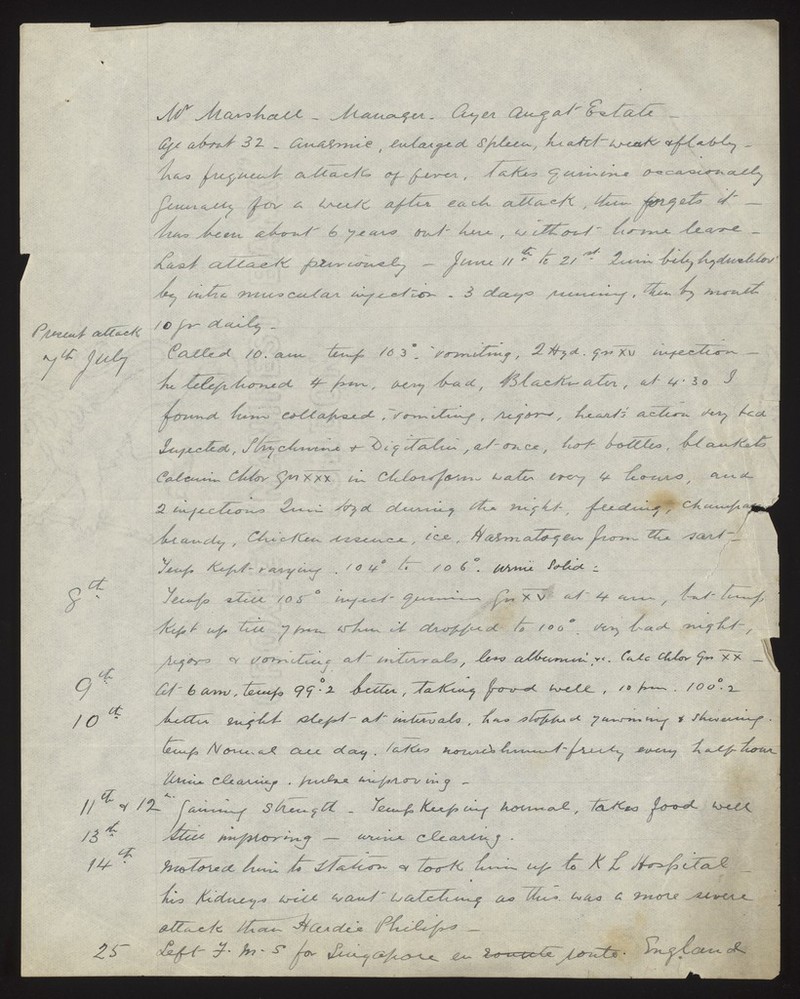 Mr Marshall - Manager. Ayer Angat Estate -
Age about 32 - anaemic, enlarged spleen, heart weak & flabby -
has frequent attacks of fever, takes quinine occasionally
generally for a week after each attack, then forgets it -
has been about 6 years out here, without home leave -
Last attack previously - June 11th to 21st Quin bihydrochlor
by intra muscular injection - 3 days running, then by mouth
10 gr daily -
Present attack
7th July
Called 10. am temp 103°. vomiting, Q Hyd. grs XV injection -
he telephoned 4 pm, very bad, Blackwater, at 4.30 I
found him collapsed, vomiting, rigors, heart's action very bad
Injected, Strychnine & Digitalin, at once, hot bottles, blankets
Calcium Chlor grs XXX in Chloroform water every 4 hours, and
2 injections Quin Hyd during the night, feeding, Champagne
brandy, Chicken essence, ice, Haematogen from the sart -
Temp Kept varying. 104° to 106°. urine Solid =
8th Temp still 105° inject quinine grs XV at 4 am, but temp
Kept up till 7 pm when it dropped to 100°. very bad night,
rigors & vomiting at intervals, less albumin Calc chlor grs XX -
9th At 6 am. temp 99°.2 better, taking food well, 10 pm. 100°.2
10th better night slept at intervals, has stopped yawning & shivering.
temp Normal all day. takes nourishment freely every half hour
Urine clearing. pulse improving -
11th & 12th Gaining strength - Temp Keeping normal, takes food well
13th Still improving - urine clearing.
14th Motored him to station & took him up to K L Hospital -
his Kidneys will want watching as this was a more severe
attack than Hardie Philips -
25 Left F. M. S for Singapore en route route. England